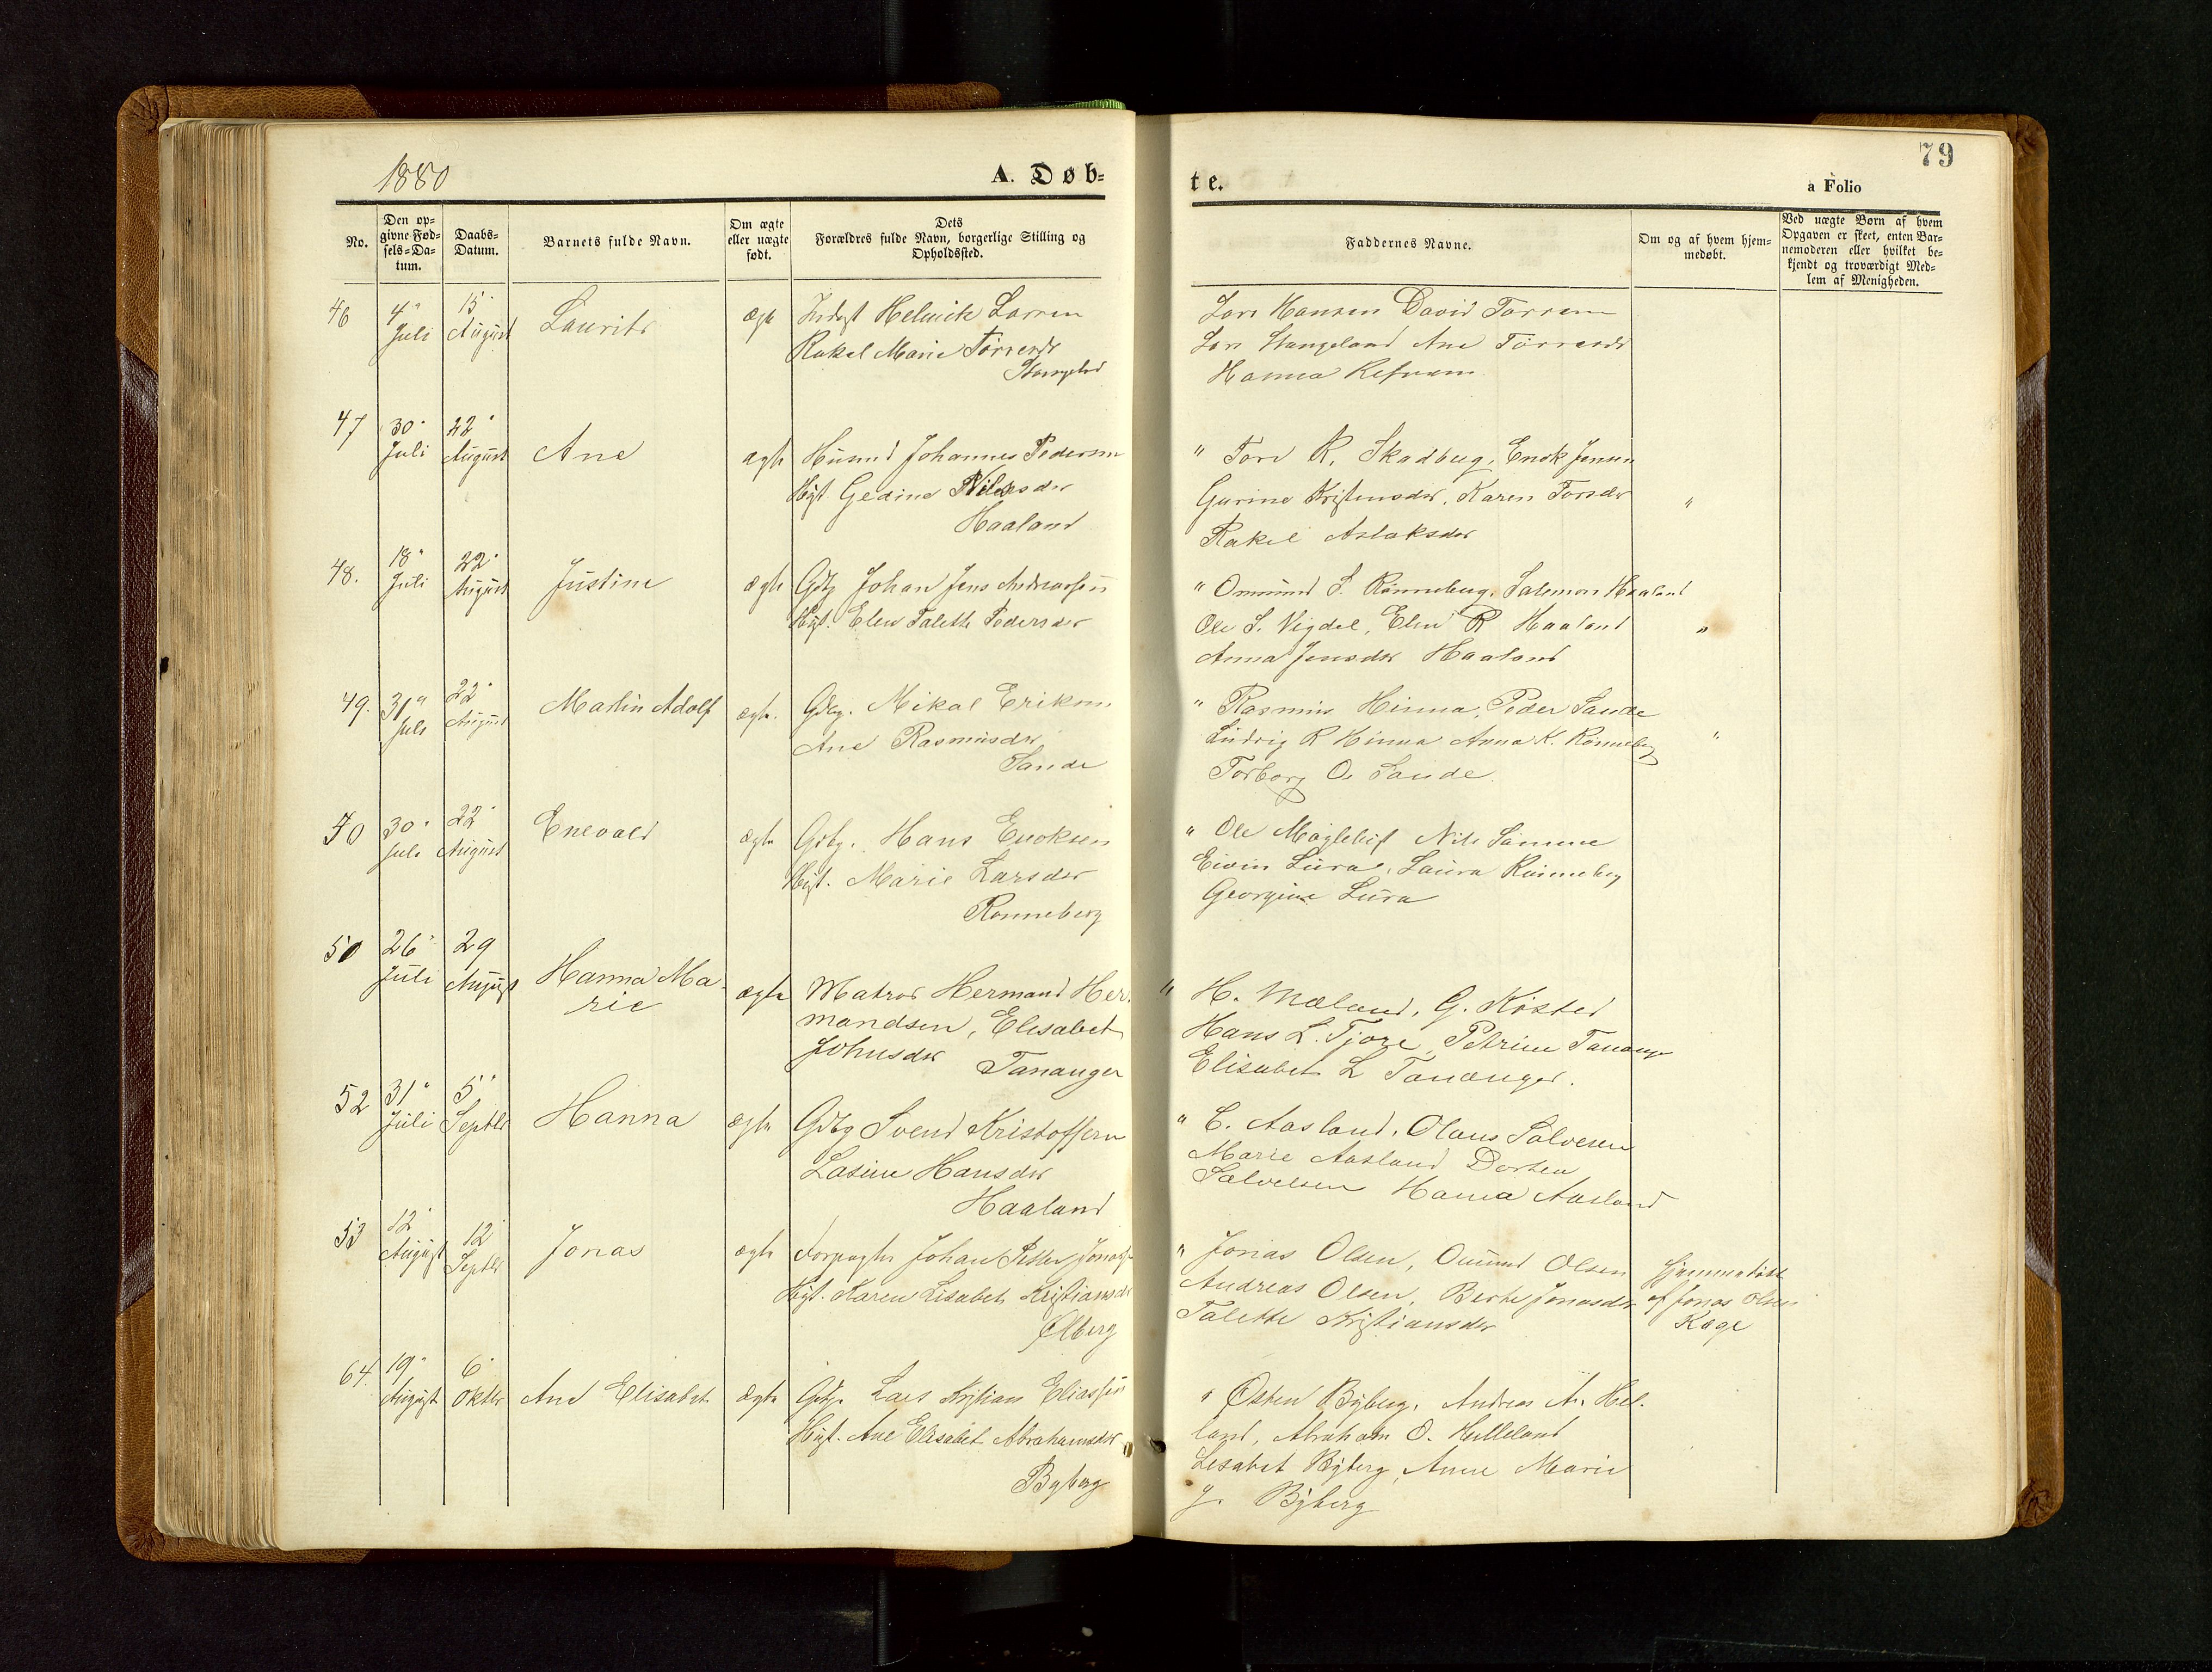 1880
A. Døb=
te.
79
a Folio
No.
Den op=
givne Fød=
sels=Da=
tum.
Daabs=
Datum.
Barnets fulde Navn.
Om ægte
eller uægte
født.
Dets
Forældres fulde Navn, borgerlige Stilling og
Opholdssted.
Faddernes Navne.
Om og af hvem hjem=
medøbt.
Ved uægte Børn af hvem
Opgaven er skeet, enten Bar=
nemoderen eller hvilket be=
kjendt og troværdigt Med=
lem af Menigheden.
46
4"
Juli
15"
August
Laurits
ægte
Helmik Larsen
Rakel Marie
Lars Hansen David
Lars Stangeland Ane
Hanna
47
30"
Juli
22"
August
Ane
ægte
Husmd Johannes Pedersen
Hust. Gedine
Haaland
" Tore R. Skadberg, Enok Jensen
Gurine Kristensdtr, Karen Torsdtr "
Rakel Aslaksdtr
48.
18"
Juli
22"
August
Justine
ægte
Gdbg Johan Jens Andreassen
Hust. Elen Talette Pedersdtr
" Ommund S. Rønneberg, Salemon Haaland
Ole S. Vigdel, Elen R Haaland "
Anna Jensdtr Haaland
49.
31"
Juli
22"
August
Martin Adolf
ægte.
Gdbg. Mikal Eriksen
Ane Rasmusdtr
Sande
" Rasmus Hinna, Peder Sande
Ludvig R Hinna Anna K. Rønneberg "
Torborg O. Sande
50
30"
Juli
22"
August
Enevald
ægte
Gdbg. Hans Enoksen
Hust. Marie Larsdtr
Rønneberg
" Ole Nils Sømme
Eivin Lura, Laura Rønneberg
Georgine Lura
50
26"
Juli
29
August
Hanna Ma-
rie
ægte
Matros Hermand Her-
mandsen, Elisabet
Johnsdtr Tananger
" H. Mæland, G. Køster
Hans L. Tjore, Petrine Tananger
Elisabet L Tananger.
52
31"
Juli
5"
Septbr
Hanna
ægte
Gdbg Svend Kristoffersen
Lasine Hansdtr
Haaland
" C. Aasland, Olaus Salvesen
Marie Aasland Dortea
Salvesen Hanna Aasland
53
12"
August
12"
Septbr
Jonas
ægte
Forpagter Johan Petter
Hust. Karen Lisabet Kristiansdtr
Ølberg
" Jonas Olsen, Omund Olsen
Andreas Olsen, Berte Jonasdtr
Talette Kristiansdtr
Hjemmedøbt
af Jonas Olsen
Kage
64.
19"
August
6"
Oktbr
Ane Elisabet
ægte
Gdbg. Lars Kristian Eliassen
Hust. Ane Elisabet Abrahamsdtr
Byberg
" Østen Byberg, Andreas A. Hel-
land, Abraham O. Helleland
Lisabet Byberg, Anne Marie
J. Byberg